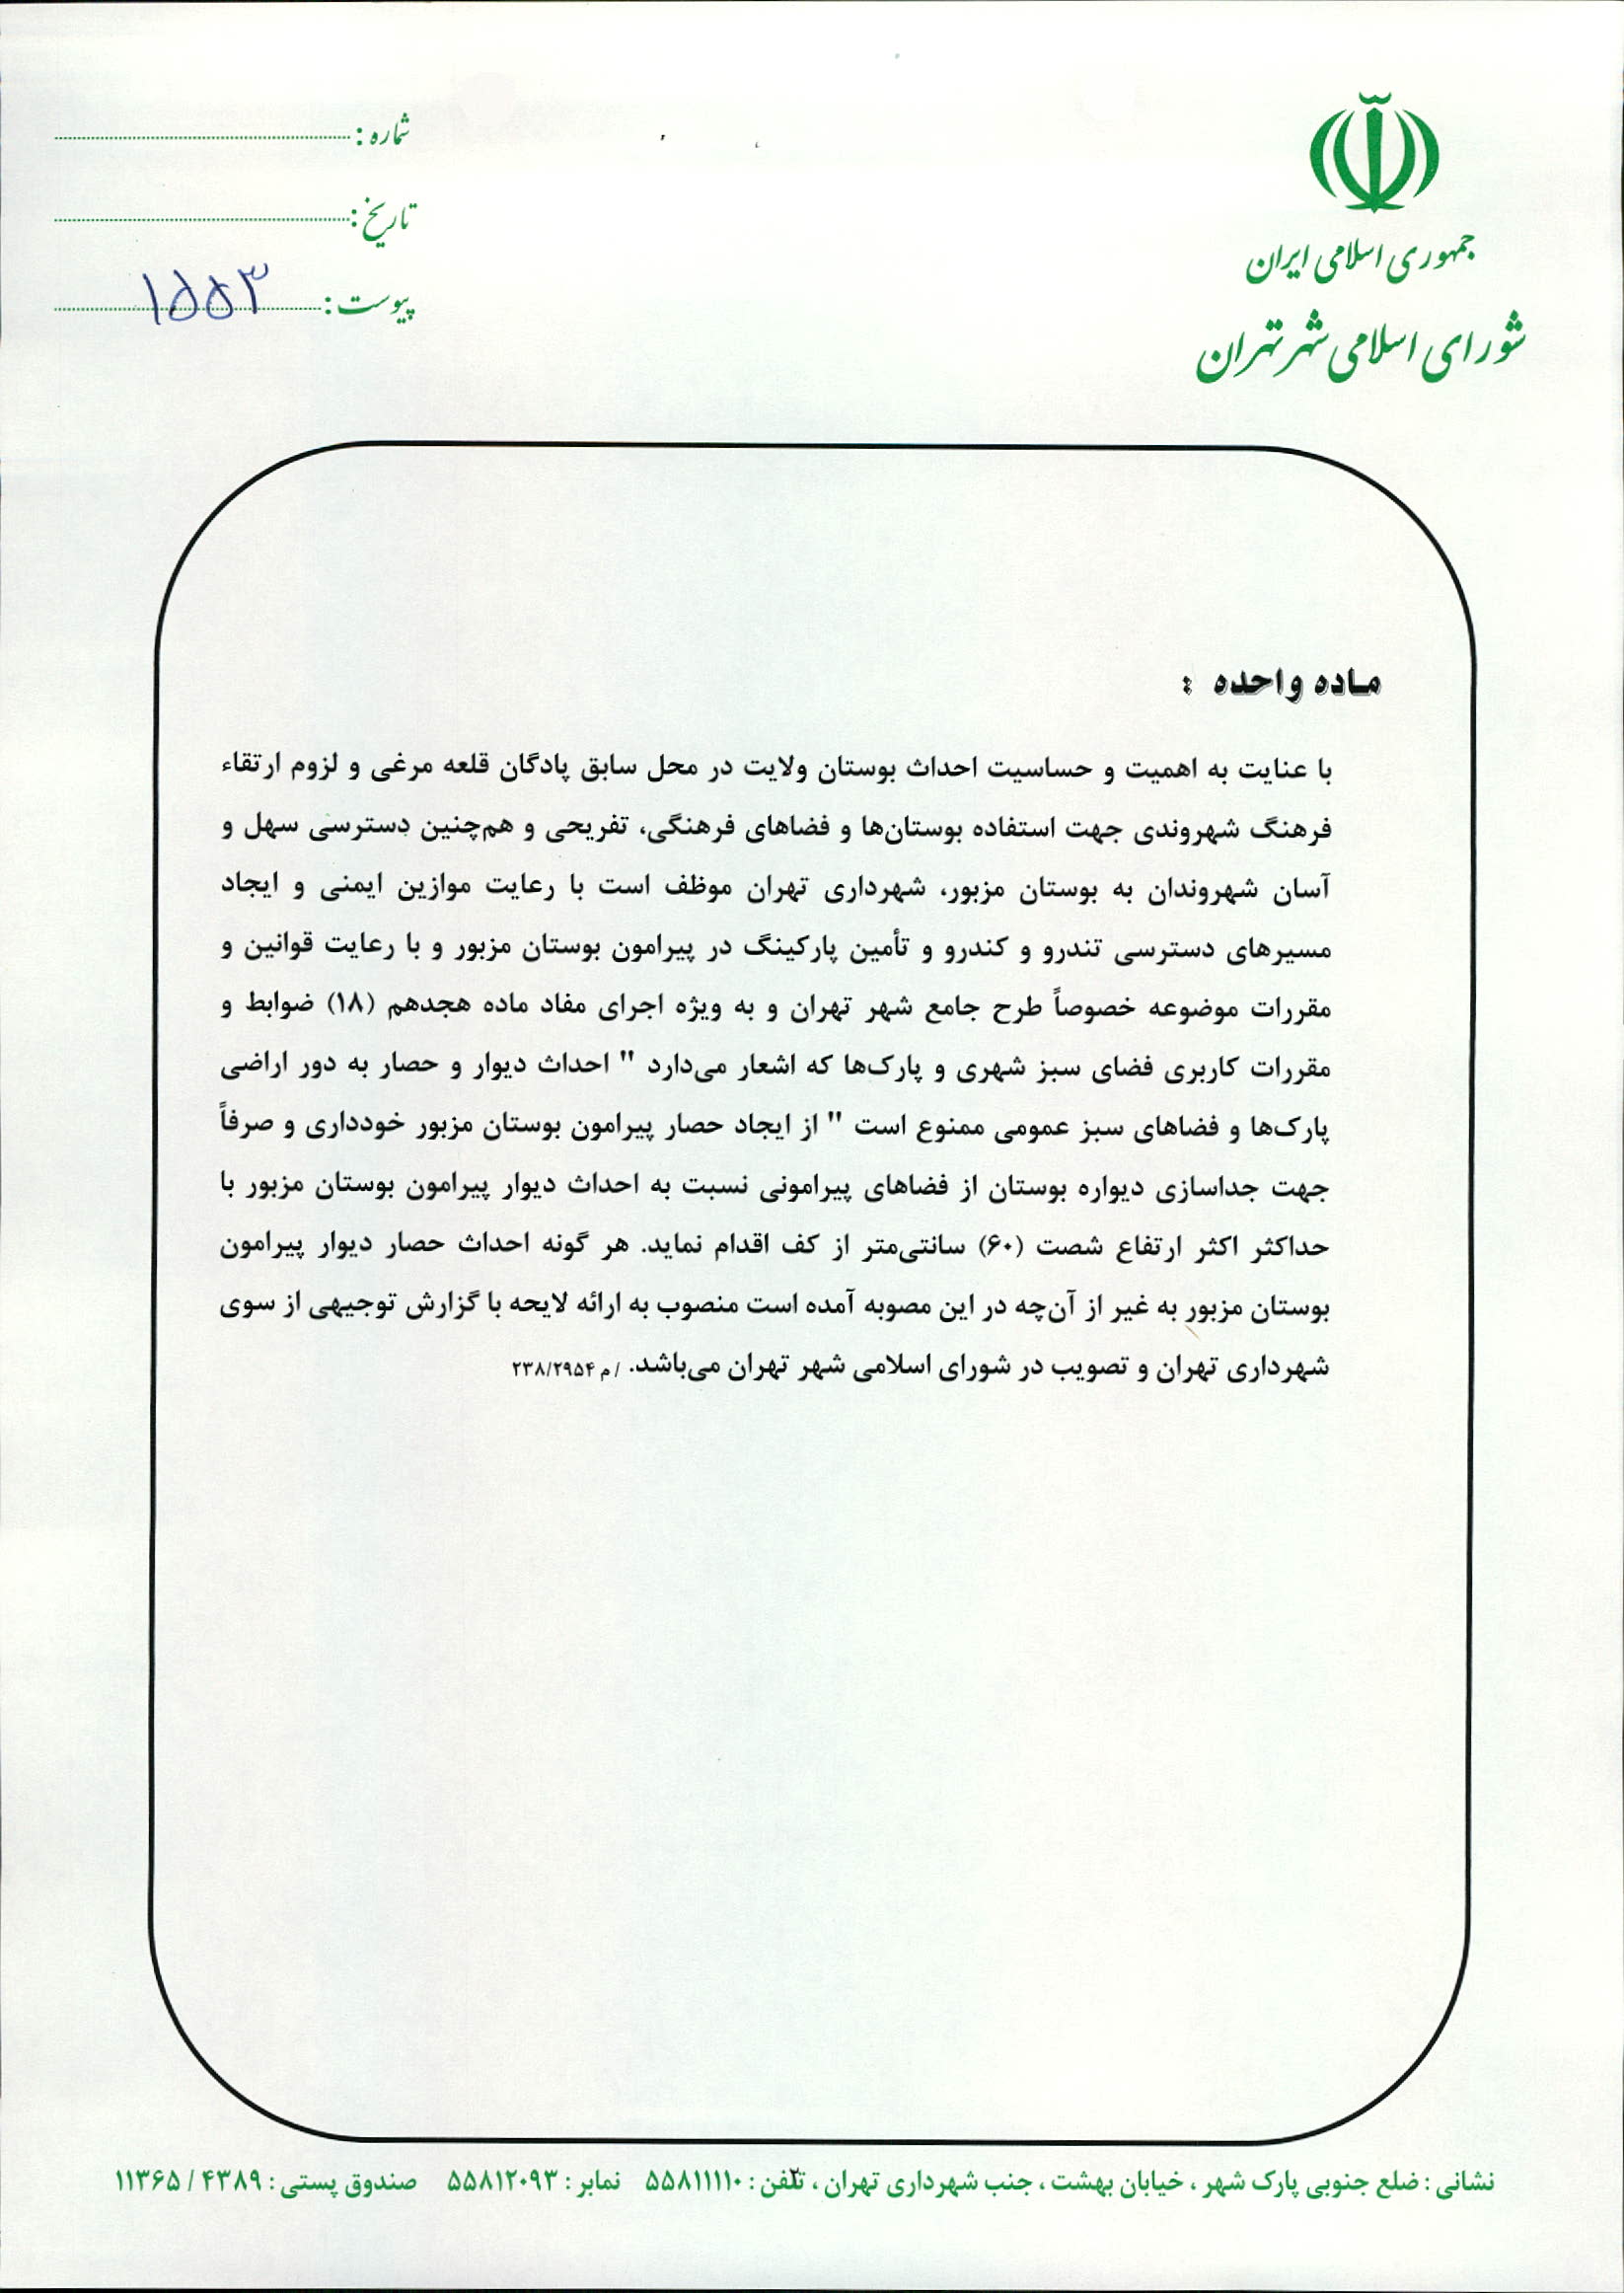 جمهوری اسلامی ایران
شورای اسلامی شهر تهران
شماره :
تاریخ :
پیوست : ۱۵۵۳
ماده واحده :
با عنایت به اهمیت و حساسیت احداث بوستان ولایت در محل سابق پادگان قلعه مرغی و لزوم ارتقاء
فرهنگ شهروندی جهت استفاده بوستان‌ها و فضاهای فرهنگی، تفریحی و هم‌چنین دسترسی سهل و
آسان شهروندان به بوستان مزبور، شهرداری تهران موظف است با رعایت موازین ایمنی و ایجاد
مسیرهای دسترسی تندرو و کندرو و تأمین پارکینگ در پیرامون بوستان مزبور و با رعایت قوانین و
مقررات موضوعه خصوصاً طرح جامع شهر تهران و به ویژه اجرای مفاد ماده هجدهم (۱۸) ضوابط و
مقررات کاربری فضای سبز شهری و پارک‌ها که اشعار می‌دارد " احداث دیوار و حصار به دور اراضی
پارک‌ها و فضاهای سبز عمومی ممنوع است " از ایجاد حصار پیرامون بوستان مزبور خودداری و صرفاً
جهت جداسازی دیواره بوستان از فضاهای پیرامونی نسبت به احداث دیوار پیرامون بوستان مزبور با
حداکثر اکثر ارتفاع شصت (۶۰) سانتی‌متر از کف اقدام نماید. هر گونه احداث حصار دیوار پیرامون
بوستان مزبور به غیر از آن‌چه در این مصوبه آمده است منصوب به ارائه لایحه با گزارش توجیهی از سوی
شهرداری تهران و تصویب در شورای اسلامی شهر تهران می‌باشد. /م ۲۳۸/۲۹۵۴
۲
نشانی : ضلع جنوبی پارک شهر ، خیابان بهشت ، جنب شهرداری تهران ، تلفن : ۵۵۸۱۱۱۱۰ نمابر : ۵۵۸۱۲۰۹۳ صندوق پستی : ۴۳۸۹ / ۱۱۳۶۵